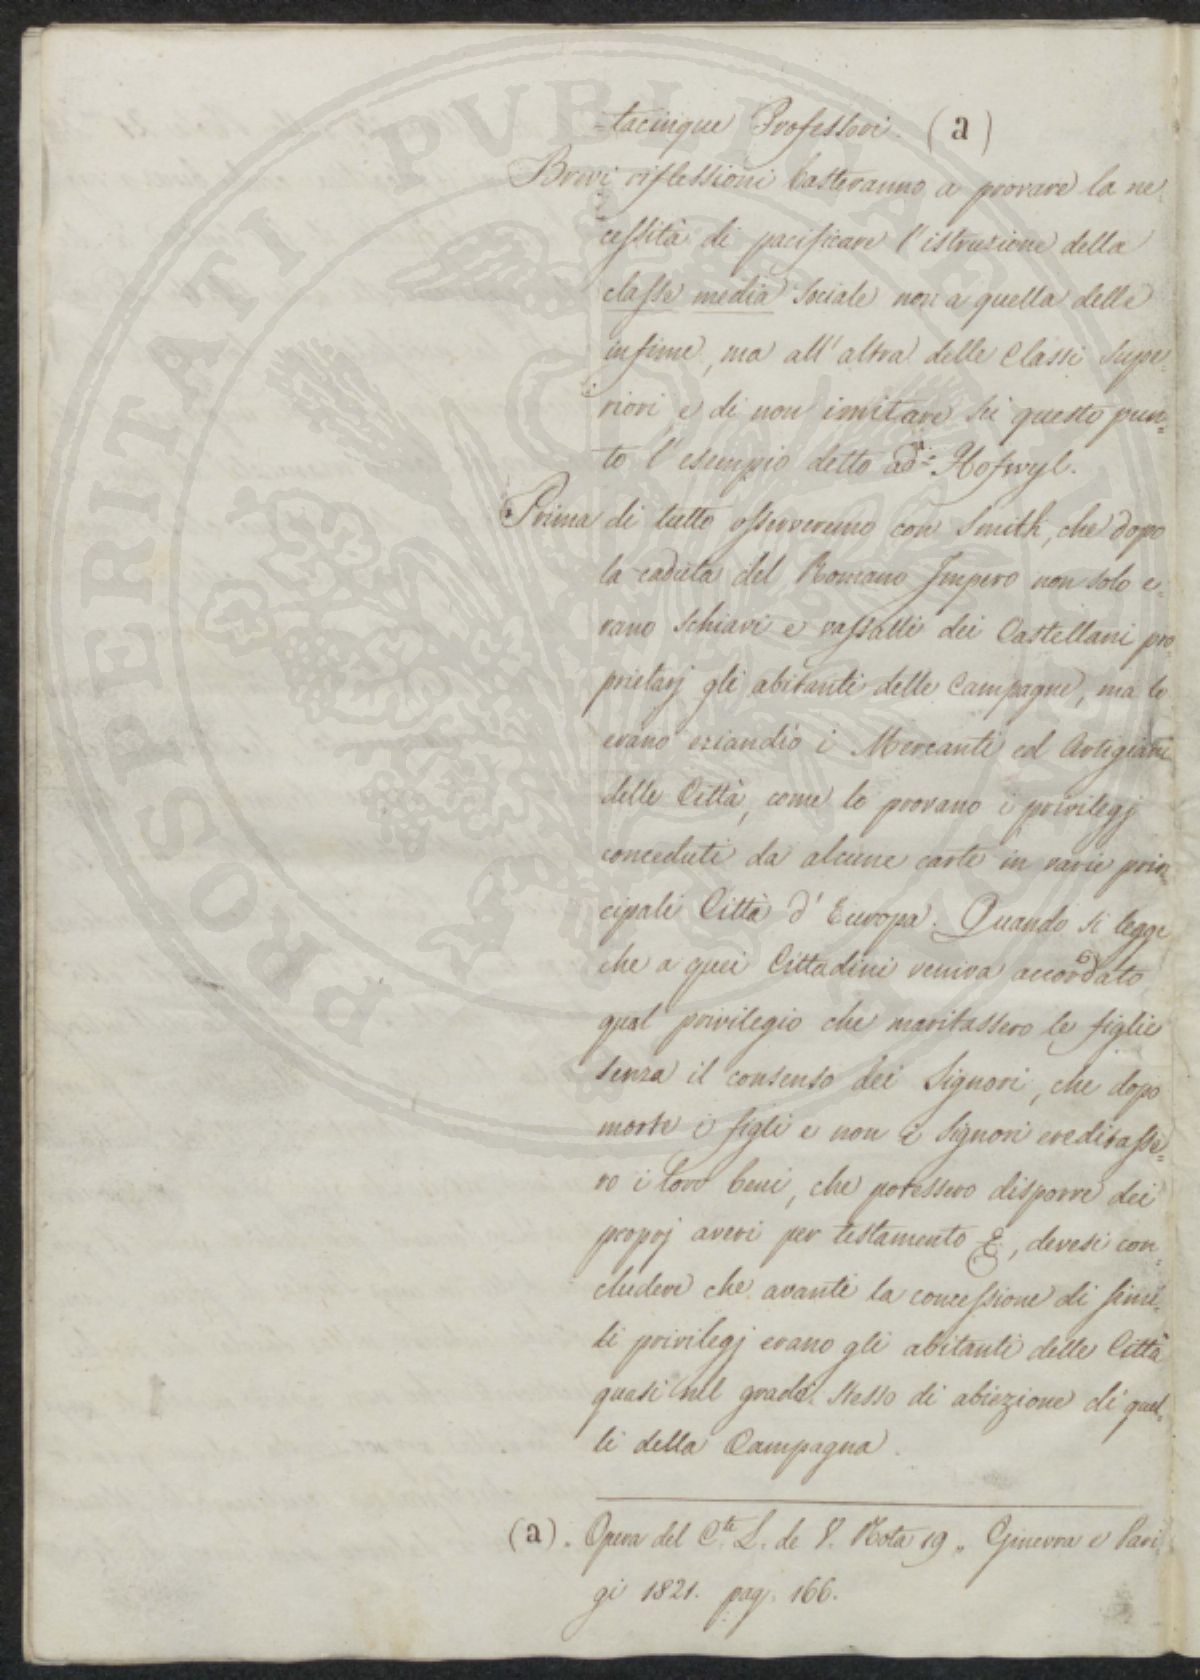 =tacinque Professori. (a)
Brevi riflessioni basteranno a provare la ne=
cessità di pacificare l'istruzione della
classe media sociale non a quella delle
infime, ma all'altra delle Classi Supe=
riori, e di non imitare su questo pun=
to l'esempio detto ad Hofwyl.
Prima di tutto osserveremo con Smith, che dopo
la caduta del Romano Impero non solo e=
rano schiavi e vassalli dei Castellani pro=
prietarj gli abitanti delle Campagne, ma lo
erano eziandio i Mercanti ed Artigiani
delle Città, come lo provano i privilegj
conceduti da alcune carte in varie prin=
cipali Città d'Europa. Quando si legge
che a quei Cittadini veniva accordato
qual privilegio che maritassero le figlie
senza il consenso dei Signori, che dopo
morte i figli e non i Signori ereditasse=
ro i loro beni, che potessero disporre dei
proprj averi per testamento &, devesi con=
cludere che avanti la concessione di simi=
li privilegj erano gli abitanti delle Città
quasi nel grado stesso di abiezione di quel=
li della Campagna.
(a). Opera del C.te L. de V. Nota 19 „ Ginevra e Pari=
gi 1821. pag. 166.
PROSPERITATI PVBLICAE AVGENDAE